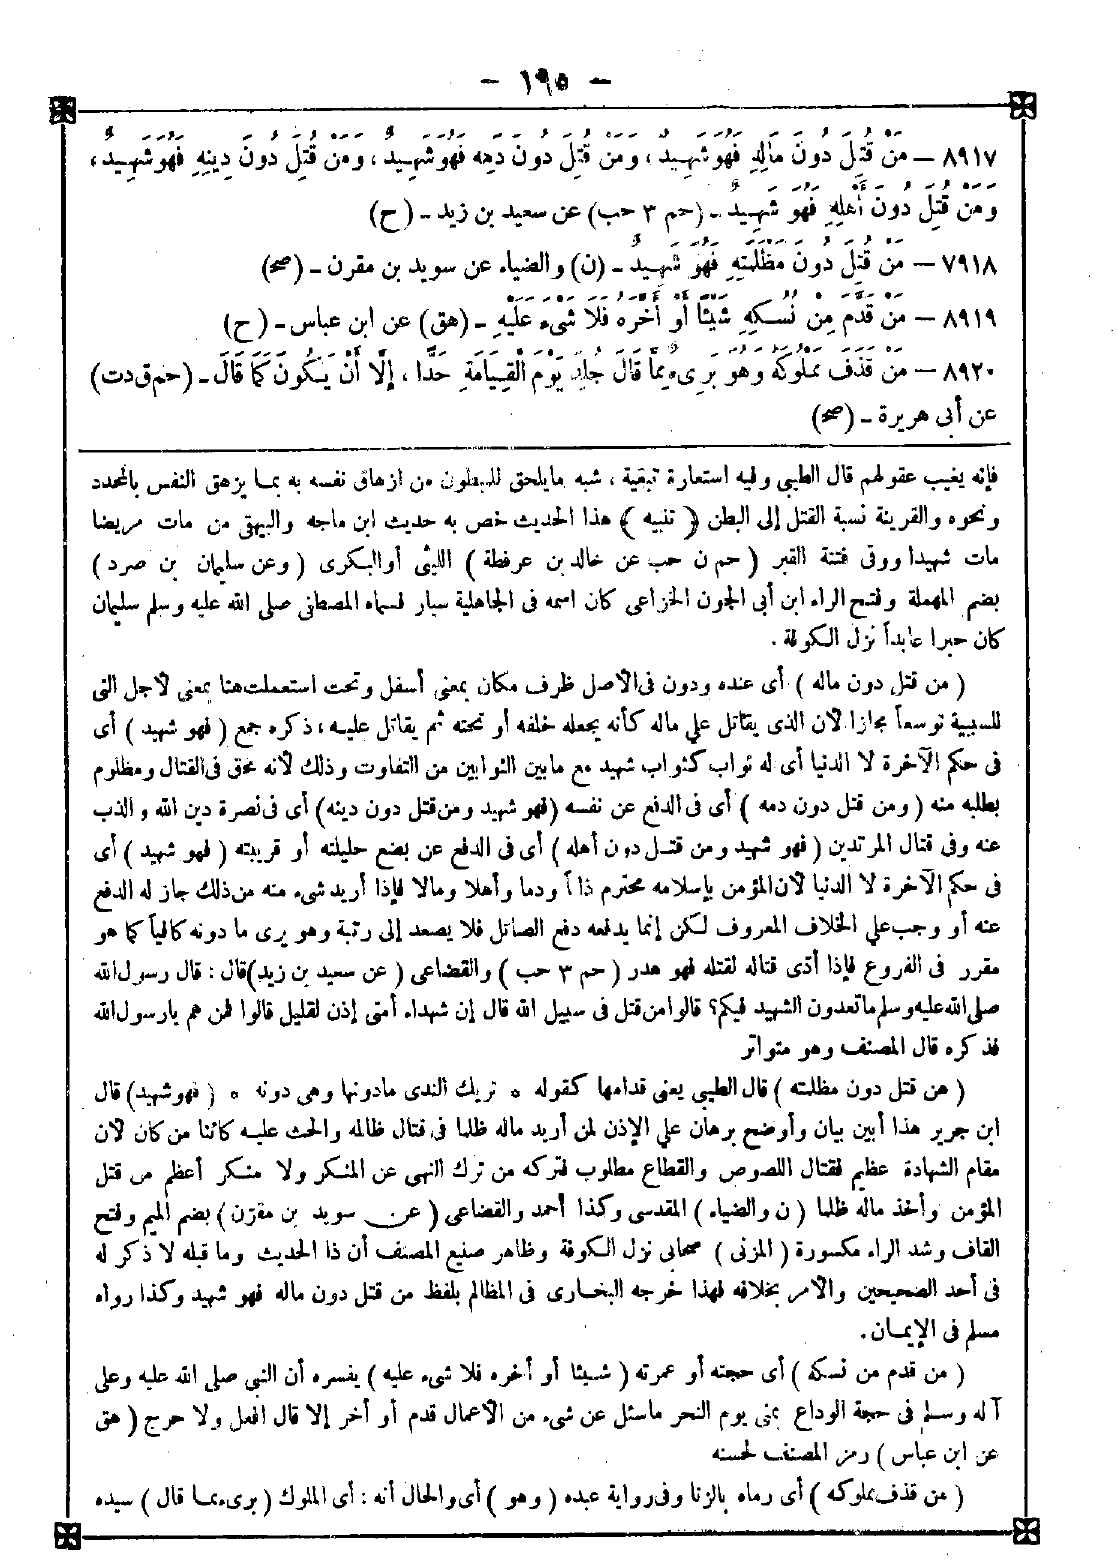 – ١٩٥ –
٨٩١٧ – مَنْ قُتِلَ دُونَ مَالِهِ فَهُوَ شَهِيدٌ، وَمَنْ قُتِلَ دُونَ دَمِهِ فَهُوَ شَهِيدٌ، وَمَنْ قُتِلَ دُونَ دِينِهِ فَهُوَ شَهِيدٌ،
وَمَنْ قُتِلَ دُونَ أَهْلِهِ فَهُوَ شَهِيدٌ - (حم ٣ حب) عن سعيد بن زيد - (ح)
٧٩١٨ – مَنْ قُتِلَ دُونَ مَظْلَمَتِهِ فَهُوَ شَهِيدٌ - (ن) والضياء عن سويد بن مقرن - (صح)
٨٩١٩ – مَنْ قَدَّمَ مِنْ نُسُكِهِ شَيْئًا أَوْ أَخَّرَهُ فَلَا شَيْءَ عَلَيْهِ - (هق) عن ابن عباس - (ح)
٨٩٢٠ – مَنْ قَذَفَ مَمْلُوكَهُ وَهُوَ بَرِىءٌ مِمَّا قَالَ جُلِدَ يَوْمَ الْقِيَامَةِ حَدًّا، إِلَّا أَنْ يَكُونَ كَمَا قَالَ - (حم ق د ت)
عن أبى هريرة - (صح)
فإنه يغيب عقولهم قال الطيبي وفيه استعارة تبعية، شبه مايلحق المبطون من ازهاق نفسه به بما يزهق النفس بالمحدد
ونحوه والقرينة نسبة القتل إلى البطن ﴿ تنبيه ﴾ هذا الحديث خص به حديث ابن ماجه والبيهقى من مات مريضا
مات شهيدا ووقى فتنة القبر (حم ن حب عن خالد بن عرفطة) الليثى أو البكرى (وعن سليمان بن صرد)
بضم المهملة وفتح الراء ابن أبى الجون الخزاعى كان اسمه فى الجاهلية سيار فسماه المصطفى صلى الله عليه وسلم سليمان
كان حبرا عابداً نزل الكوفة .
(من قتل دون ماله) أى عنده ودون فى الاصل ظرف مكان بمعنى أسفل وتحت استعملت هنا بمعنى لاجل التى
للسببية توسعاً مجازا لان الذى يقاتل على ماله كأنه يجعله خلفه أو تحته ثم يقاتل عليه، ذكره جمع (فهو شهيد) أى
فى حكم الآخرة لا الدنيا أى له ثواب كثواب شهيد مع مابين الثوابين من التفاوت وذلك لأنه محق فى القتال ومظلوم
بطلبه منه (ومن قتل دون دمه) أى فى الدفع عن نفسه (فهو شهيد ومن قتل دون دينه) أى فى نصرة دين الله والذب
عنه وفى قتال المرتدين (فهو شهيد ومن قتل دون أهله) أى فى الدفع عن بضع حليلته أو قريبته (فهو شهيد) أى
فى حكم الآخرة لا الدنيا لان المؤمن بإسلامه محترم ذاتاً ودما وأهلا ومالا فإذا أريد شىء منه من ذلك جاز له الدفع
عنه أو وجب على الخلاف المعروف لكن إنما يدفعه دفع الصائل فلا يصعد إلى رتبة وهو يرى ما دونه كافياً كما هو
مقرر فى الفروع فإذا أدى قتاله لقتله فهو هدر (حم ٣ حب) والقضاعى (عن سعيد بن زيد) قال : قال رسول الله
صلى الله عليه وسلم ما تعدون الشهيد فيكم؟ قالوا من قتل فى سبيل الله قال إن شهداء أمتى إذن لقليل قالوا فمن هم يارسول الله
فذكره قال المصنف وهو متواتر
(من قتل دون مظلمته) قال الطيبي يعنى قدامها كقوله * تريك الندى مادونها وهى دونه * (فهو شهيد) قال
ابن جرير هذا أبين بيان وأوضح برهان على الإذن لمن أريد ماله ظلما فى قتال ظالمه والحث عليه كائنا من كان لان
مقام الشهادة عظيم فقتال اللصوص والقطاع مطلوب فتركه من ترك النهى عن المنكر ولا منكر أعظم من قتل
المؤمن وأخذ ماله ظلما (ن والضياء) المقدسى وكذا أحمد والقضاعى (عن سويد بن مقرن) بضم الميم وفتح
القاف وشد الراء مكسورة (المزنى) صحابى نزل الكوفة وظاهر صنيع المصنف أن ذا الحديث وما قبله لا ذكر له
فى أحد الصحيحين والامر بخلافه فهذا خرجه البخارى فى المظالم بلفظ من قتل دون ماله فهو شهيد وكذا رواه
مسلم فى الإيمان .
(من قدم من نسكه) أى حجته أو عمرته (شيئا أو أخره فلا شىء عليه) يفسره أن النبى صلى الله عليه وعلى
آله وسلم فى حجة الوداع بمنى يوم النحر ماسئل عن شىء من الأعمال قدم أو أخر إلا قال افعل ولا حرج (هق
عن ابن عباس) رمز المصنف لحسنه
(من قذف مملوكه) أى رماه بالزنا وفى رواية عبده (وهو) أى والحال أنه : أى المملوك (برىء مما قال) سيده